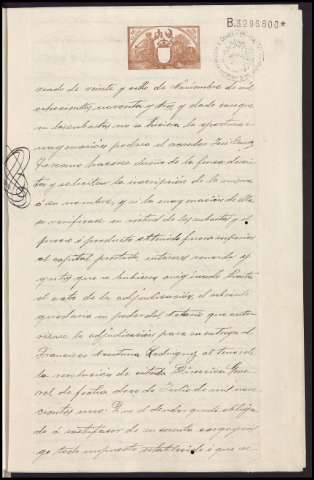 B.3296800*
nado de veinte y ocho de Noviembre de mil
ochocientos noventa y dos y dado caso que
en la subasta no se hiciera la oportuna
enagenación podrá el acreedor José
Perdomo hacerse dueño de la finca descri-
ta y solicitar la inscripción de la misma
á su nombre, y si la enagenación de ella
se verificase en virtud de la subasta y el
precio ó producto obtenido fuera superior
al capital prestado intereses vencidos y
gastos que se hubiesen originado hasta
el acto de la adjudicación, el sobrante
quedaría en poder del Notario que auto-
rizase la adjudicación para su entrega al
Francisco Rodriguez al tenor de
la resolución de citada Dirección Gene-
ral de fecha doce de Julio de mil nove-
cientos uno: Que el deudor queda obliga-
do á satisfacer de su cuenta cargo y pa-
go todo impuesto establecido ó que se